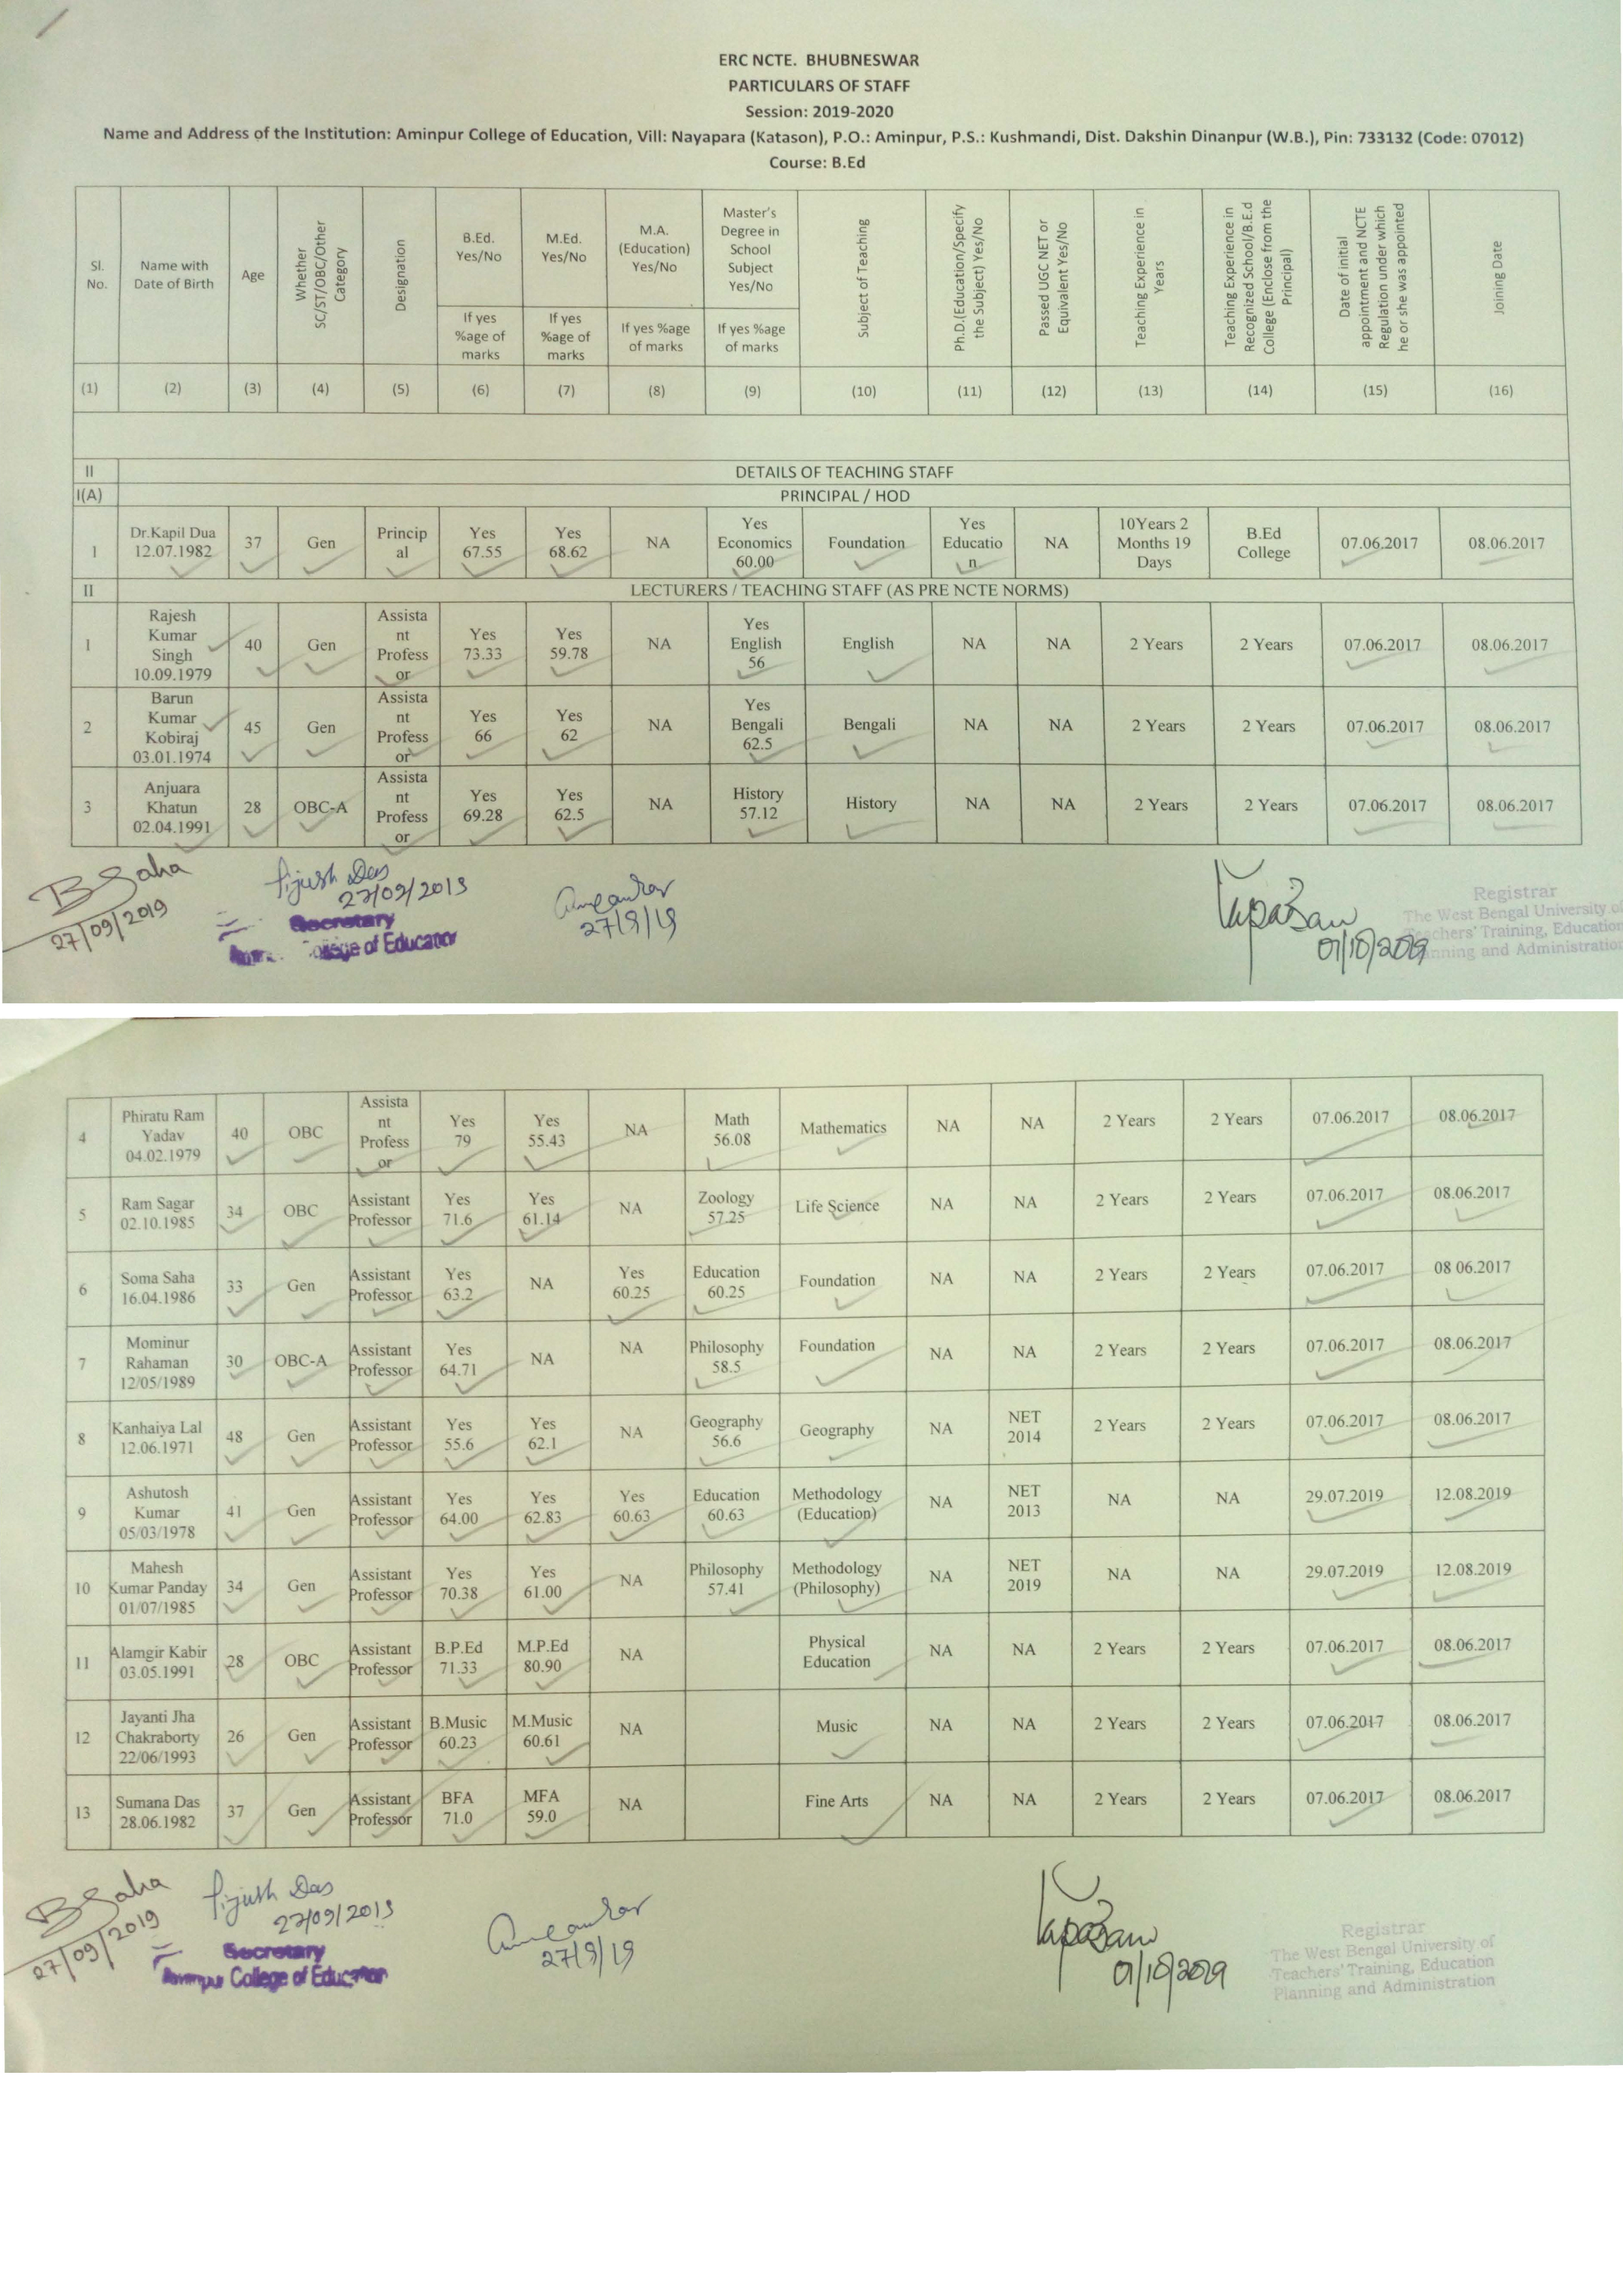 ERC NCTE. BHUBNESWAR
PARTICULARS OF STAFF
Session: 2019-2020
Name and Address of the Institution: Aminpur College of Education, Vill: Nayapara (Katason), P.O.: Aminpur, P.S.: Kushmandi, Dist. Dakshin Dinanpur (W.B.), Pin: 733132 (Code: 07012)
Course: B.Ed
Sl. No. | Name with Date of Birth | Age | Whether SC/ST/OBC/Other Category | Designation | B.Ed. Yes/No If yes %age of marks | M.Ed. Yes/No If yes %age of marks | M.A. (Education) Yes/No If yes %age of marks | Master's Degree in School Subject Yes/No If yes %age of marks | Subject of Teaching | Ph.D.(Education/Specify the Subject) Yes/No | Passed UGC NET or Equivalent Yes/No | Teaching Experience in Years | Teaching Experience in Recognized School/B.E.d College (Enclose from the Principal) | Date of initial appointment and NCTE Regulation under which he or she was appointed | Joining Date
(1) (2) (3) (4) (5) (6) (7) (8) (9) (10) (11) (12) (13) (14) (15) (16)
II DETAILS OF TEACHING STAFF
I(A) PRINCIPAL / HOD
1 Dr.Kapil Dua 12.07.1982 37 Gen Princip al Yes 67.55 Yes 68.62 NA Yes Economics 60.00 Foundation Yes Educatio n NA 10Years 2 Months 19 Days B.Ed College 07.06.2017 08.06.2017
II LECTURERS / TEACHING STAFF (AS PRE NCTE NORMS)
1 Rajesh Kumar Singh 10.09.1979 40 Gen Assista nt Profess or Yes 73.33 Yes 59.78 NA Yes English 56 English NA NA 2 Years 2 Years 07.06.2017 08.06.2017
2 Barun Kumar Kobiraj 03.01.1974 45 Gen Assista nt Profess or Yes 66 Yes 62 NA Yes Bengali 62.5 Bengali NA NA 2 Years 2 Years 07.06.2017 08.06.2017
3 Anjuara Khatun 02.04.1991 28 OBC-A Assista nt Profess or Yes 69.28 Yes 62.5 NA History 57.12 History NA NA 2 Years 2 Years 07.06.2017 08.06.2017
BSaha
27/09/2019
Pijush Das
27/09/2019
Secretary
College of Education
27/9/19
01/10/2019
Registrar
The West Bengal University of
Teachers' Training, Education
Planning and Administration
4 Phiratu Ram Yadav 04.02.1979 40 OBC Assista nt Profess or Yes 79 Yes 55.43 NA Math 56.08 Mathematics NA NA 2 Years 2 Years 07.06.2017 08.06.2017
5 Ram Sagar 02.10.1985 34 OBC Assistant Professor Yes 71.6 Yes 61.14 NA Zoology 57.25 Life Science NA NA 2 Years 2 Years 07.06.2017 08.06.2017
6 Soma Saha 16.04.1986 33 Gen Assistant Professor Yes 63.2 NA Yes 60.25 Education 60.25 Foundation NA NA 2 Years 2 Years 07.06.2017 08 06.2017
7 Mominur Rahaman 12/05/1989 30 OBC-A Assistant Professor Yes 64.71 NA NA Philosophy 58.5 Foundation NA NA 2 Years 2 Years 07.06.2017 08.06.2017
8 Kanhaiya Lal 12.06.1971 48 Gen Assistant Professor Yes 55.6 Yes 62.1 NA Geography 56.6 Geography NA NET 2014 2 Years 2 Years 07.06.2017 08.06.2017
9 Ashutosh Kumar 05/03/1978 41 Gen Assistant Professor Yes 64.00 Yes 62.83 Yes 60.63 Education 60.63 Methodology (Education) NA NET 2013 NA NA 29.07.2019 12.08.2019
10 Mahesh Kumar Panday 01/07/1985 34 Gen Assistant Professor Yes 70.38 Yes 61.00 NA Philosophy 57.41 Methodology (Philosophy) NA NET 2019 NA NA 29.07.2019 12.08.2019
11 Alamgir Kabir 03.05.1991 28 OBC Assistant Professor B.P.Ed 71.33 M.P.Ed 80.90 NA Physical Education NA NA 2 Years 2 Years 07.06.2017 08.06.2017
12 Jayanti Jha Chakraborty 22/06/1993 26 Gen Assistant Professor B.Music 60.23 M.Music 60.61 NA Music NA NA 2 Years 2 Years 07.06.2017 08.06.2017
13 Sumana Das 28.06.1982 37 Gen Assistant Professor BFA 71.0 MFA 59.0 NA Fine Arts NA NA 2 Years 2 Years 07.06.2017 08.06.2017
BSaha
27/09/2019
Pijush Das
27/09/2019
Secretary
Aminpur College of Education
27/9/19
01/10/2019
Registrar
The West Bengal University of
Teachers' Training, Education
Planning and Administration